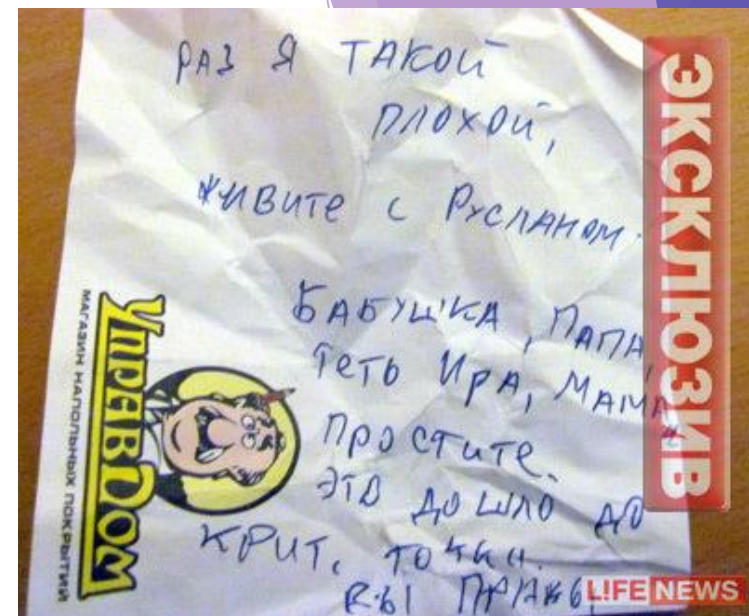 РАЗ Я ТАКОЙ
ПЛОХОЙ,
ЖИВИТЕ С РУСЛАНОМ.
БАБУШКА, ПАПА,
ТЕТЬ ИРА, МАМА
ПРОСТИТЕ.
ЭТО ДОШЛО ДО
КРИТ. ТОЧКИ.
ВЫ
УПРАВДОМ
МАГАЗИН НАПОЛЬНЫХ ПОКРЫТИЙ
ЭКСКЛЮЗИВ
LIFE NEWS